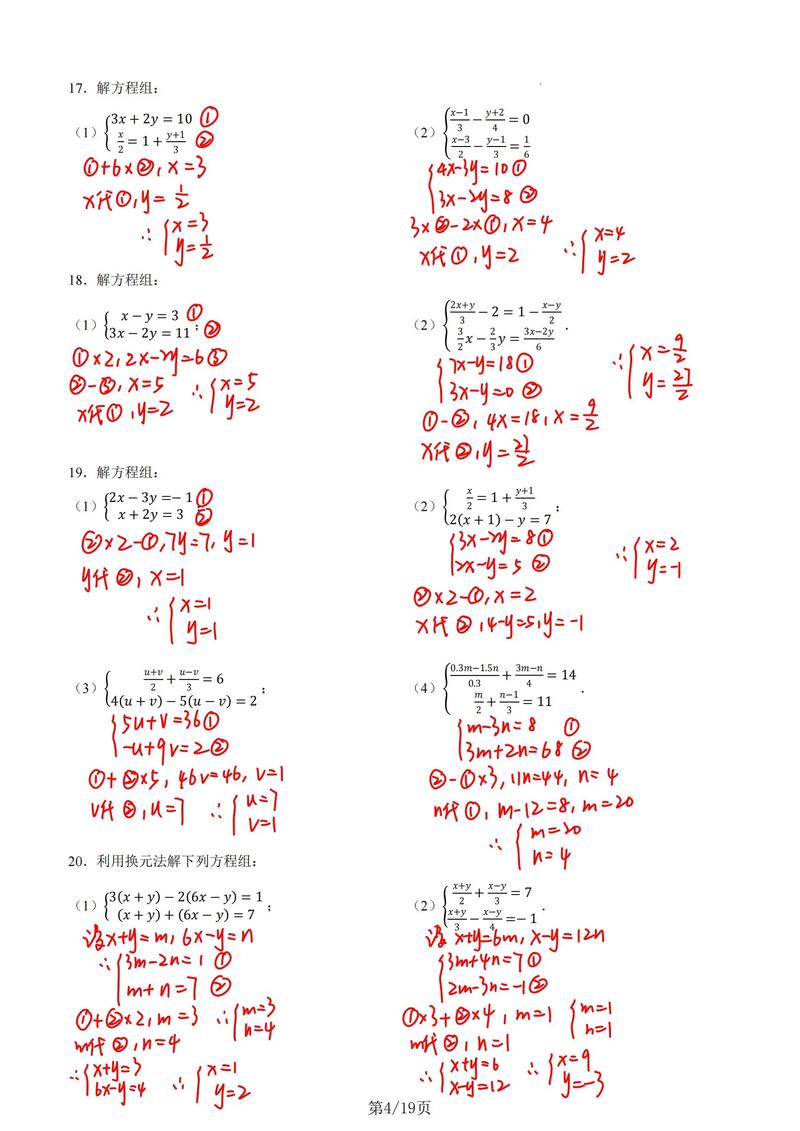 17．解方程组：
（1）{3x + 2y = 10 ①
x/2 = 1 + (y+1)/3 ②
①+6×②, x=3
x代①, y= 1/2
∴ {x=3
y=1/2
（2）{(x−1)/3 − (y+2)/4 = 0
(x−3)/2 − (y−1)/3 = 1/6
{4x-3y=10①
3x-2y=8 ②
3×②-2×①, x=4
x代①, y=2 ∴ {x=4
y=2
18．解方程组：
（1）{x − y = 3 ①
3x − 2y = 11 ; ②
①×2, 2x-2y=6③
②-③, x=5 ∴ {x=5
x代①, y=2 y=2
（2）{(2x+y)/3 − 2 = 1 − (x−y)/2
3/2 x − 2/3 y = (3x−2y)/6 .
{7x-y=18①
3x-y=0 ②
∴ {x=9/2
y=27/2
①-②, 4x=18, x=9/2
x代②, y=27/2
19．解方程组：
（1）{2x − 3y =− 1 ①
x + 2y = 3 ②
②×2-①, 7y=7, y=1
y代②, x=1
∴ {x=1
y=1
（2）{x/2 = 1 + (y+1)/3
2(x + 1) − y = 7 ;
{3x-2y=8①
2x-y=5 ②
∴ {x=2
y=-1
②×2-①, x=2
x代②, 4-y=5, y=-1
（3）{(u+v)/2 + (u−v)/3 = 6
4(u + v) − 5(u − v) = 2 ;
{5u+v=36①
-u+9v=2②
①+②×5, 46v=46, v=1
v代②, u=7 ∴ {u=7
v=1
（4）{(0.3m−1.5n)/0.3 + (3m−n)/4 = 14
m/2 + (n−1)/3 = 11 .
{m-3n=8 ①
3m+2n=68 ②
②-①×3, 11n=44, n=4
n代①, m-12=8, m=20
∴ {m=20
n=4
20．利用换元法解下列方程组：
（1）{3(x + y) − 2(6x − y) = 1
(x + y) + (6x − y) = 7 ;
设x+y=m, 6x-y=n
∴ {3m-2n=1 ①
m+n=7 ②
①+②×2, m=3 ∴ {m=3
n=4
m代②, n=4
∴ {x+y=3
6x-y=4 ∴ {x=1
y=2
（2）{(x+y)/2 + (x−y)/3 = 7
(x+y)/3 − (x−y)/4 =− 1 .
设 x+y=6m, x-y=12n
{3m+4n=7①
2m-3n=-1②
①×3+②×4, m=1 {m=1
n=1
m代②, n=1
∴ {x+y=6
x-y=12 ∴ {x=9
y=-3
第4/19页